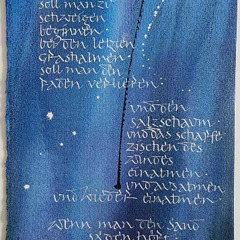 soll man zu
schweigen
beginnen.
bei den letzten
Grashalmen
soll man den
Faden verlieren.
und den
Salzschaum
und das scharfe
zischen des
windes
einatmen.
und ausatmen
und wieder einatmen.
wenn man den Sand